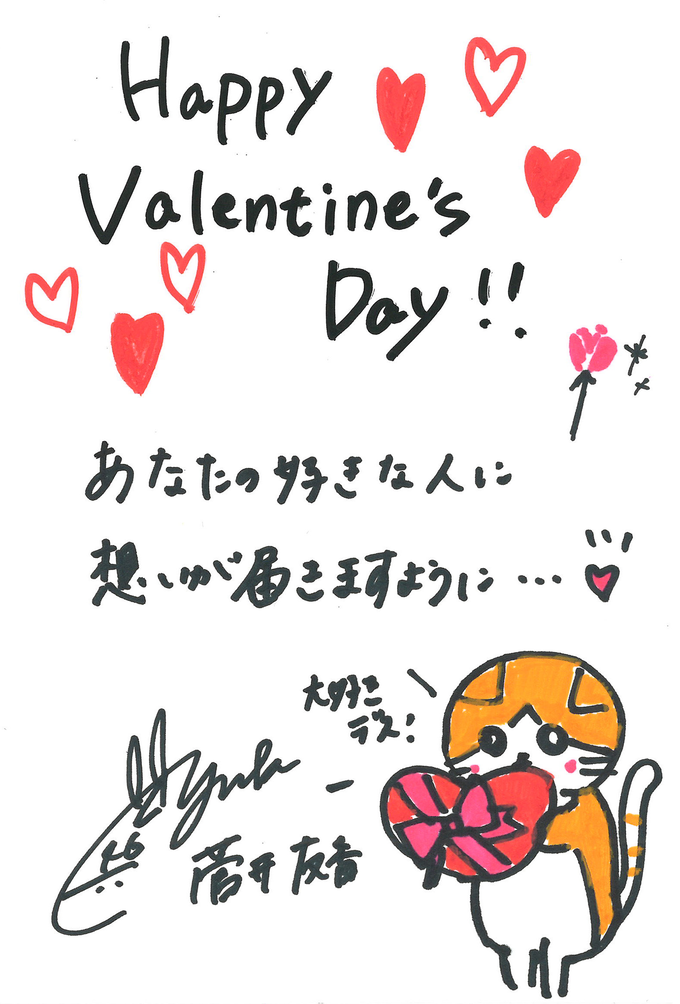 Happy
Valentine's
Day!!
あなたの好きな人に
想いが届きますように…
大好き
デス!
菅井友香